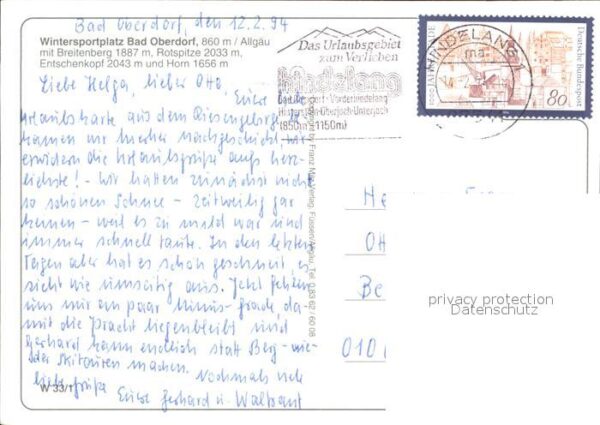 Bad Oberdorf, den 12.2.94
Wintersportplatz Bad Oberdorf, 860 m / Allgäu
mit Breitenberg 1887 m, Rotspitze 2033 m,
Entschenkopf 2043 m und Horn 1656 m
Liebe Helga, lieber Otto,
Eure liebe
Urlaubskarte aus dem Riesengebirge
kamen wir hierher nachgeschickt. Wir
erwidern die Urlaubsgrüße aufs herz-
lichste! - Wir hatten zunächst nicht
so schönen Schnee - zeitweilig gar
keinen - weil es zu mild war und
immer schnell taute. In den letzten
Tagen aber hat es schön geschneit, es
sieht wie unseitig aus. Jetzt fehlen
uns nur ein paar Minus-grade, da-
mit die Pracht liegenbleibt und
Gerhard kann endlich statt Berg- wie-
der Skitouren machen.
Nochmals viele
liebe Grüße
Eure Gerhard u. Waltraut
W 33/1
Franz Verlag, Füssen/Allgäu, Tel. 0 83 62 / 60 98
Das Urlaubsgebiet
zum Verlieben
Hindelang
Bad Oberdorf · Vorderhindelang
Hinterstein · Oberjoch · Unterjoch
(850m - 1150m)
HINDELANG 1
Deutsche Bundespost
80
He
Ott
Be
010
privacy protection
Datenschutz